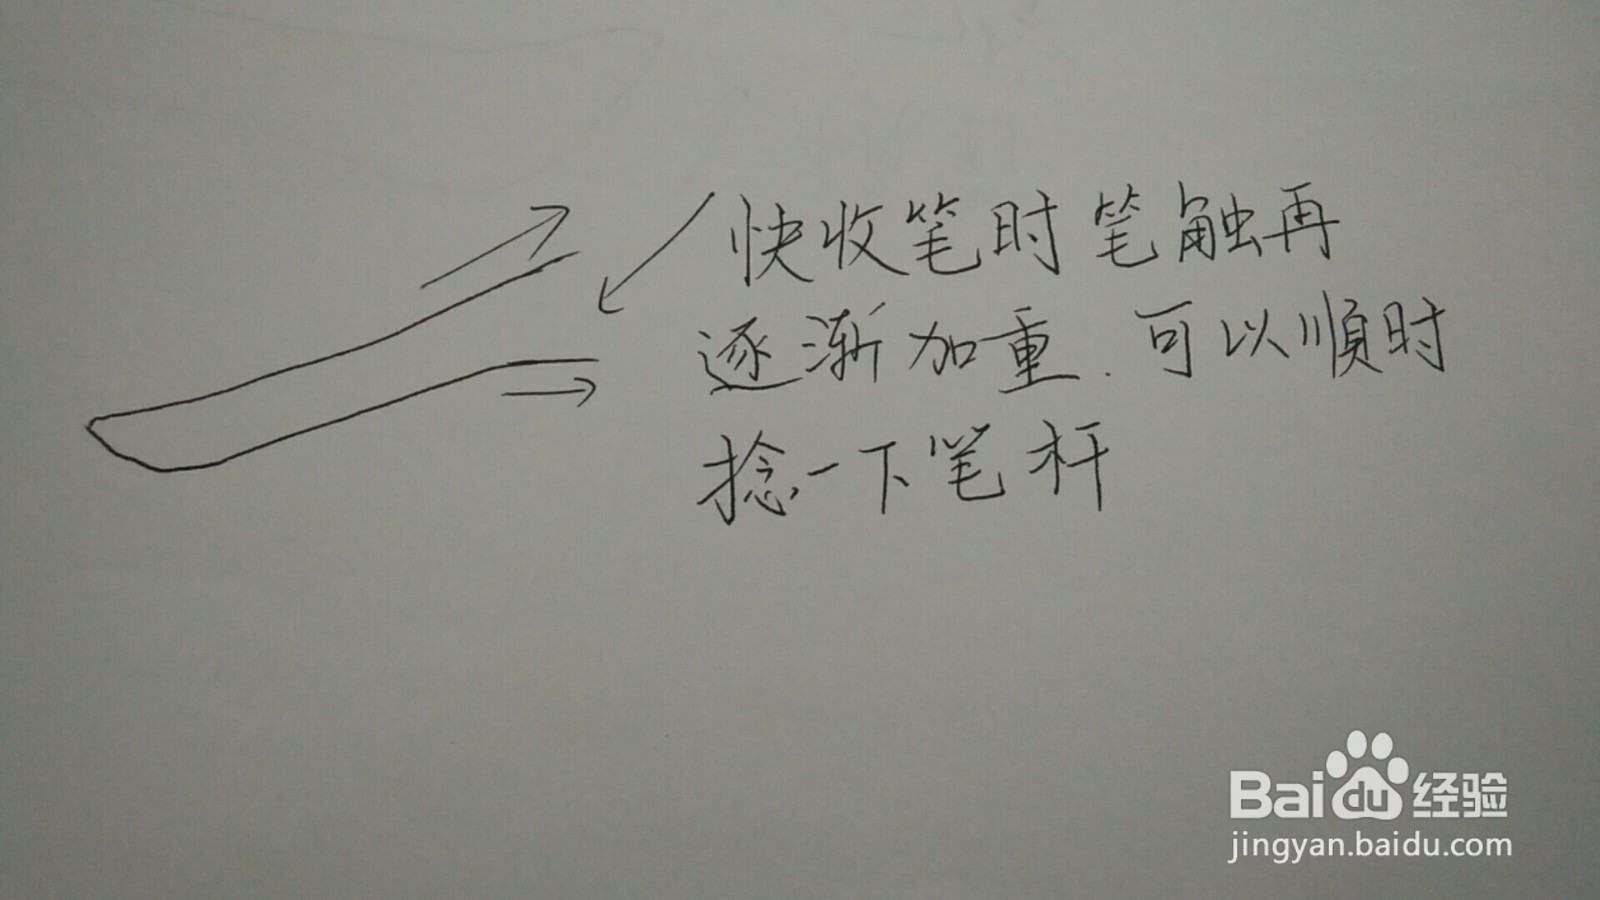 快收笔时笔触再
逐渐加重.可以順时
捻一下笔杆
Baidu经验
jingyan.baidu.com